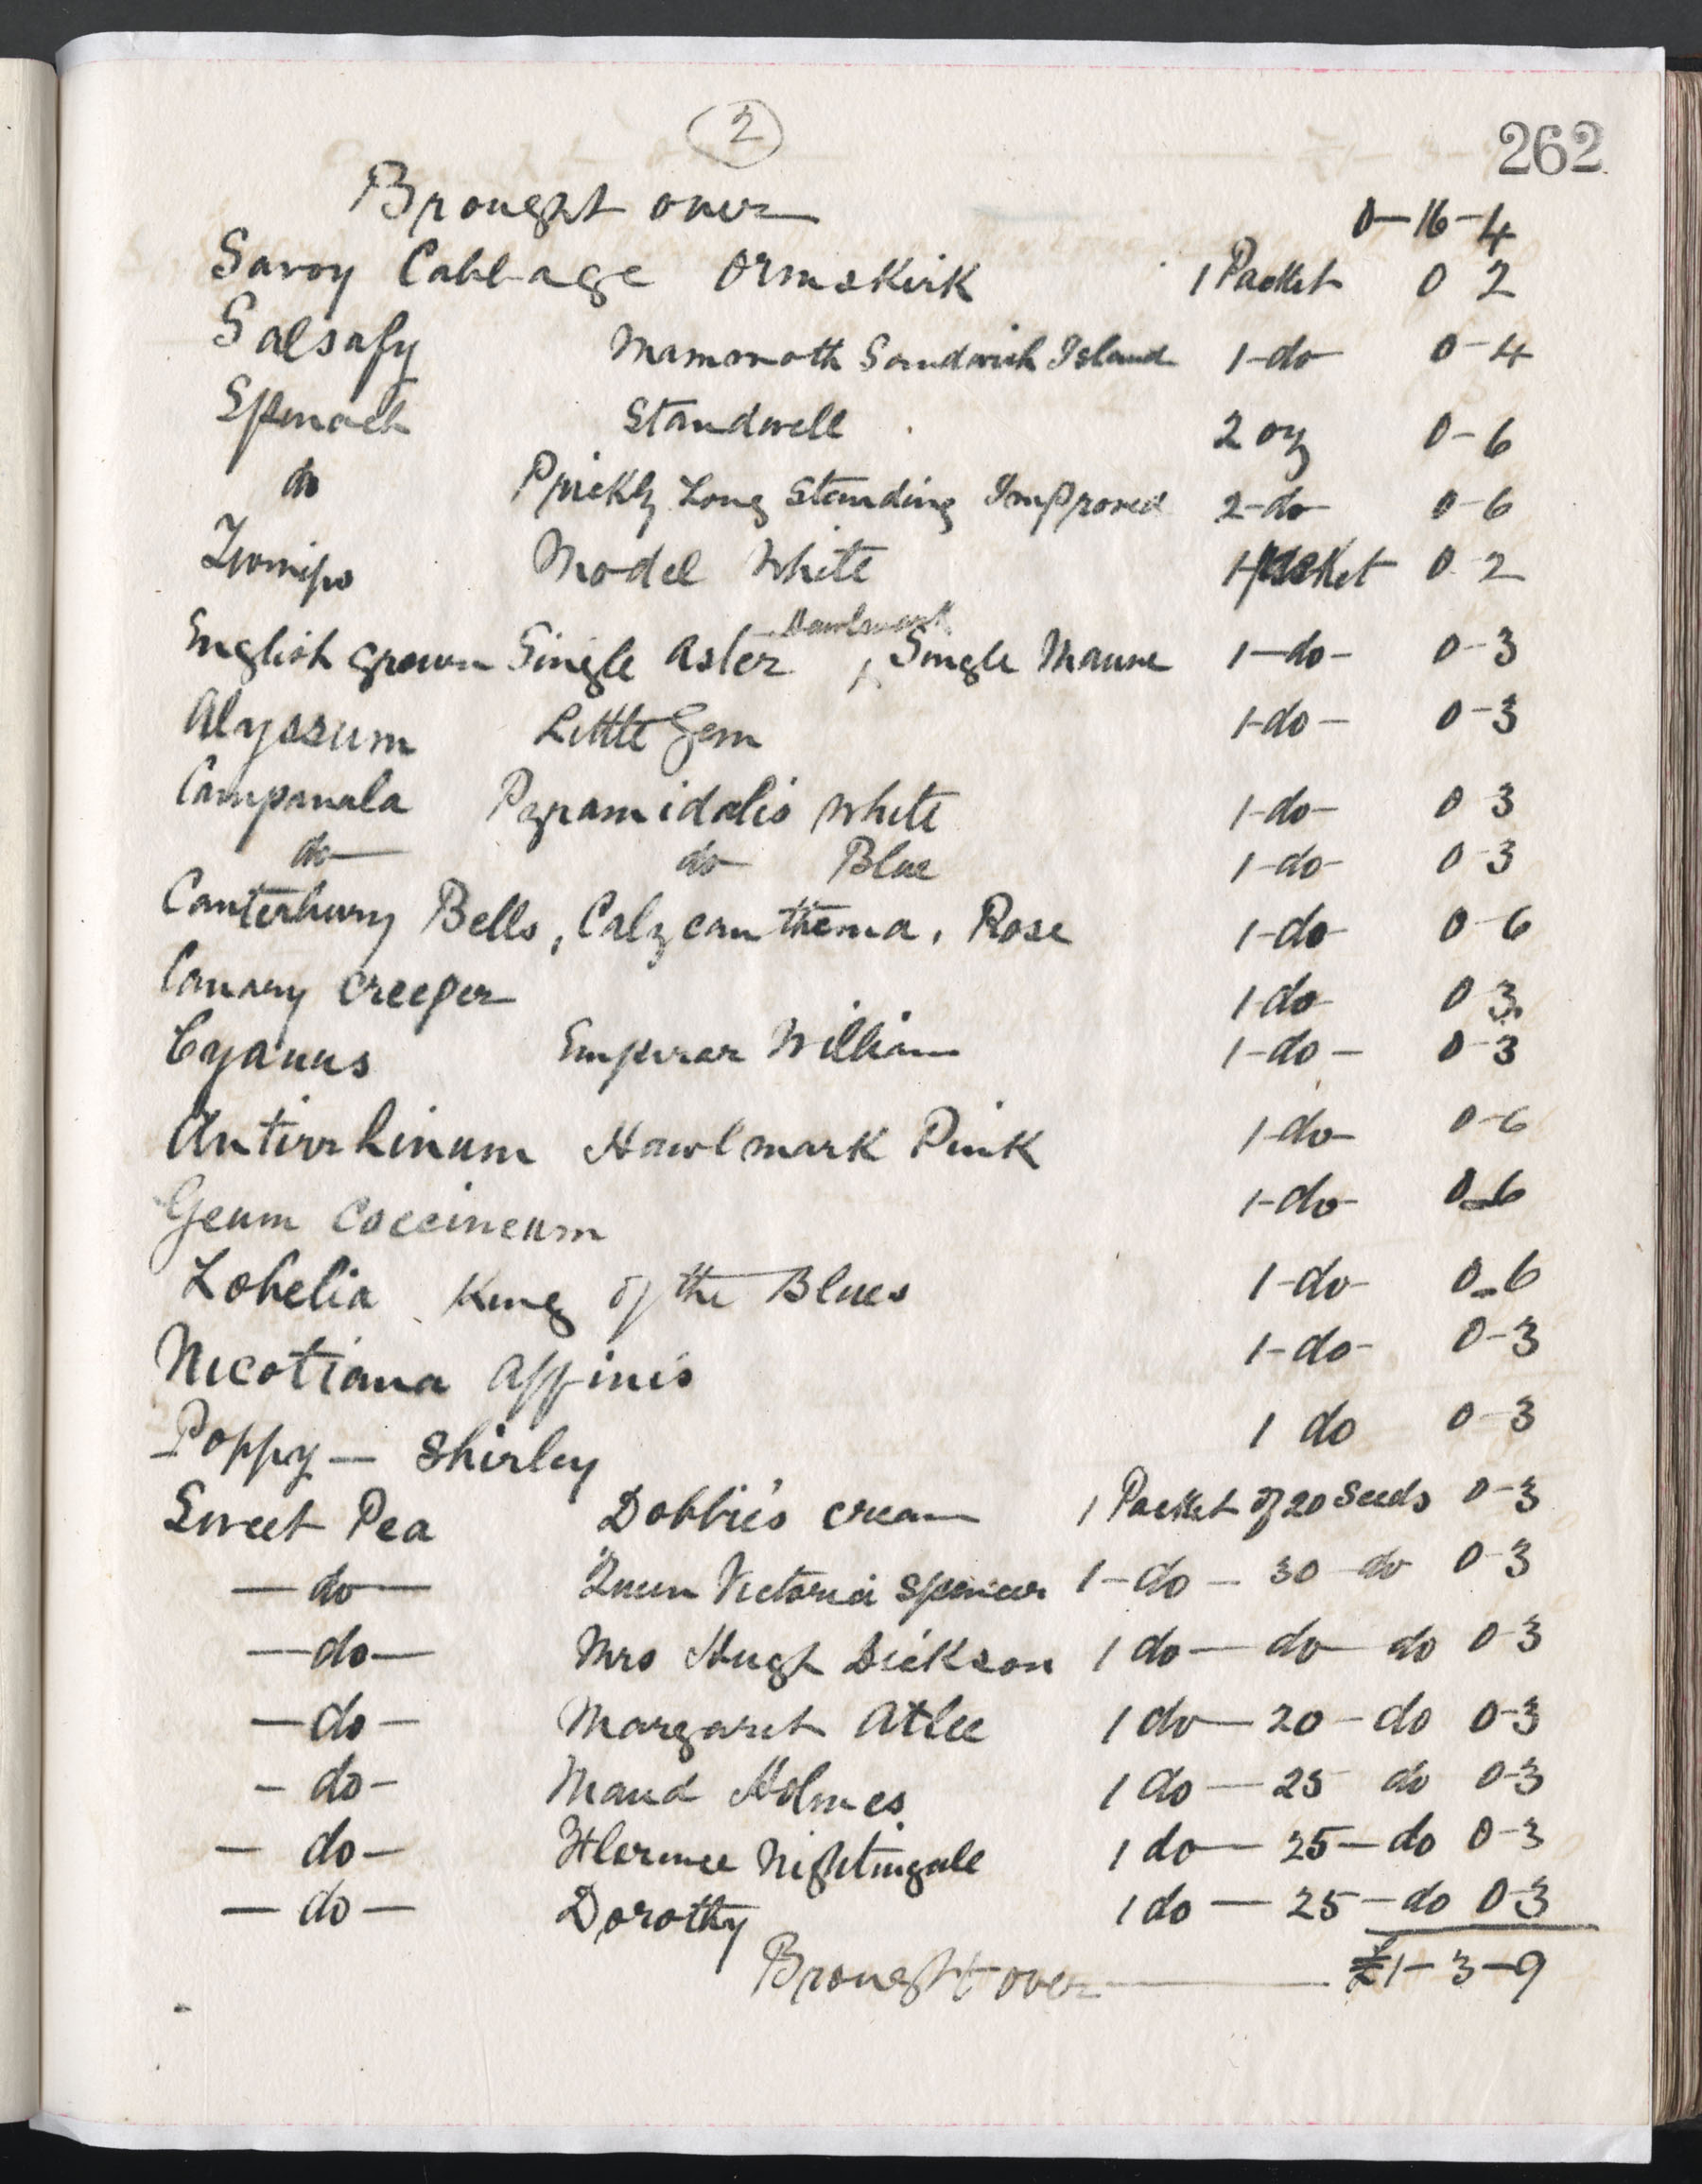 2
262
Brought over 0-16-4
Savoy Cabbage Ormskirk 1 Packet 0 2
Salsafy Mammoth Sandwich Island 1-do- 0-4
Spinach Standwell 2 oz 0-6
do Prickly Long Standing Improved 2-do- 0-6
Turnips Model White 1 packet 0 2
Hawlmark
English grown Single Aster , Single Mauve 1-do- 0-3
Alyssum Little Gem 1-do- 0-3
Campanala Pyramidalis White 1-do- 0 3
do- do- Blue 1-do- 0-3
Canterbury Bells, Calycanthema, Rose 1-do- 0-6
Canary creeper 1 do- 0 3
Cyanus Emperor William 1-do- 0-3
Antirrhinum Hawlmark Pink 1-do- 0-6
Geum Coccineum 1-do- 0-6
Lobelia King of the Blues 1-do- 0-6
Nicotiana Affinis 1-do- 0-3
Poppy - Shirley 1 do 0-3
Sweet Pea Dobbie's cream 1 Packet of 20 seeds 0-3
- do - Queen Victoria Spencer 1-do - 30 do 0-3
- do - Mrs Hugh Dickson 1 do - do - do 0-3
- do - Margaret Atlee 1 do - 20 - do 0-3
- do - Maud Holmes 1 do - 25 do 0-3
- do - Florence Nightingale 1 do - 25 - do 0-3
- do - Dorothy 1 do - 25 - do 0-3
Brought over £1-3-9